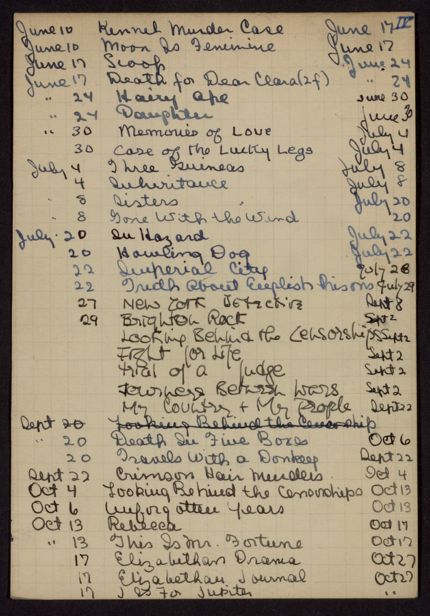 IV
June 10 Kennel Murder Case June 17
June 10 Moon Is Feminine June 17
June 17 Scoop June 24
June 17 Death for Dear Clara (2f) " 24
" 24 Hairy Ape June 30
" 24 Daughter June 3
" 30 Memories of Love July 4
30 Case of the Lucky Legs July 4
July 4 Three Guineas July 8
4 Inheritance July 8
" 8 Sisters July 20
" 8 Gone With the Wind 20
July 20 In Hazard July 22
20 Howling Dog July 22
22 Imperial City July 28
22 Truth About English Prisons July 29
27 New York Detective Sept 2
29 Brighton Rock Sept 2
Looking Behind the Censorships Sept 2
Fight for Life Sept 2
Trial of a Judge Sept 2
Journeys Between Wars Sept 2
My Country + My People Sept 22
Sept 20 Looking Behind the Censorship
" 20 Death In Five Boxes Oct 6
20 Travels With a Donkey Sept 22
Sept 22 Crimson Hair Murders Oct 4
Oct 4 Looking Behind the Censorships Oct 13
Oct 6 Unforgotten Years Oct 13
Oct 13 Rebecca Oct 17
" 13 This Is Mr. Fortune Oct 17
17 Elizabethan Drama Oct 27
17 Elizabethan Journal Oct 27
17 J Is For Jupiter "